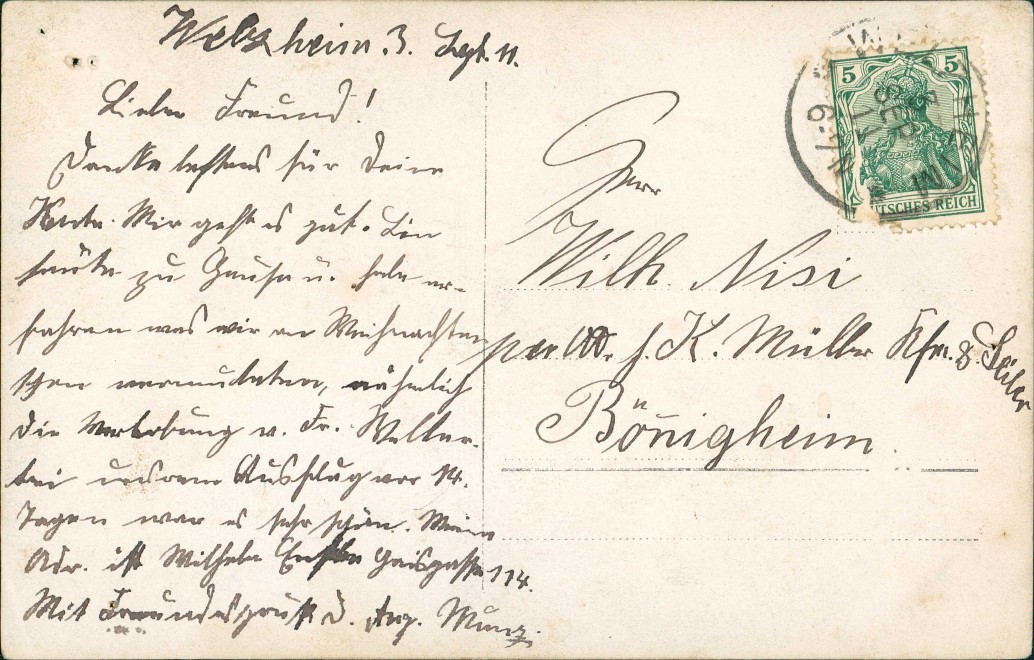 Welzheim 3. Sept. 11.
Lieber Freund!
Danke bestens für Deine
Karte. Mir geht es gut. Bin
heute zu Hause u. habe er-
fahren was wir an Weihnachten
schon vermuteten, nähmlich
die Verlobung v. Fr. Welter.
bei unserem Ausflug vor 14.
Tagen war es sehr schön. Meine
Adr. ist Wilhelm Gaisgasse 114.
Mit Freundesgruß D. Aug. Munz.
Herr
Wilh. Nisi
per Adr. J. K. Müller Kfm.
Bönigheim
5 5
DEUTSCHES REICH
SEP
11